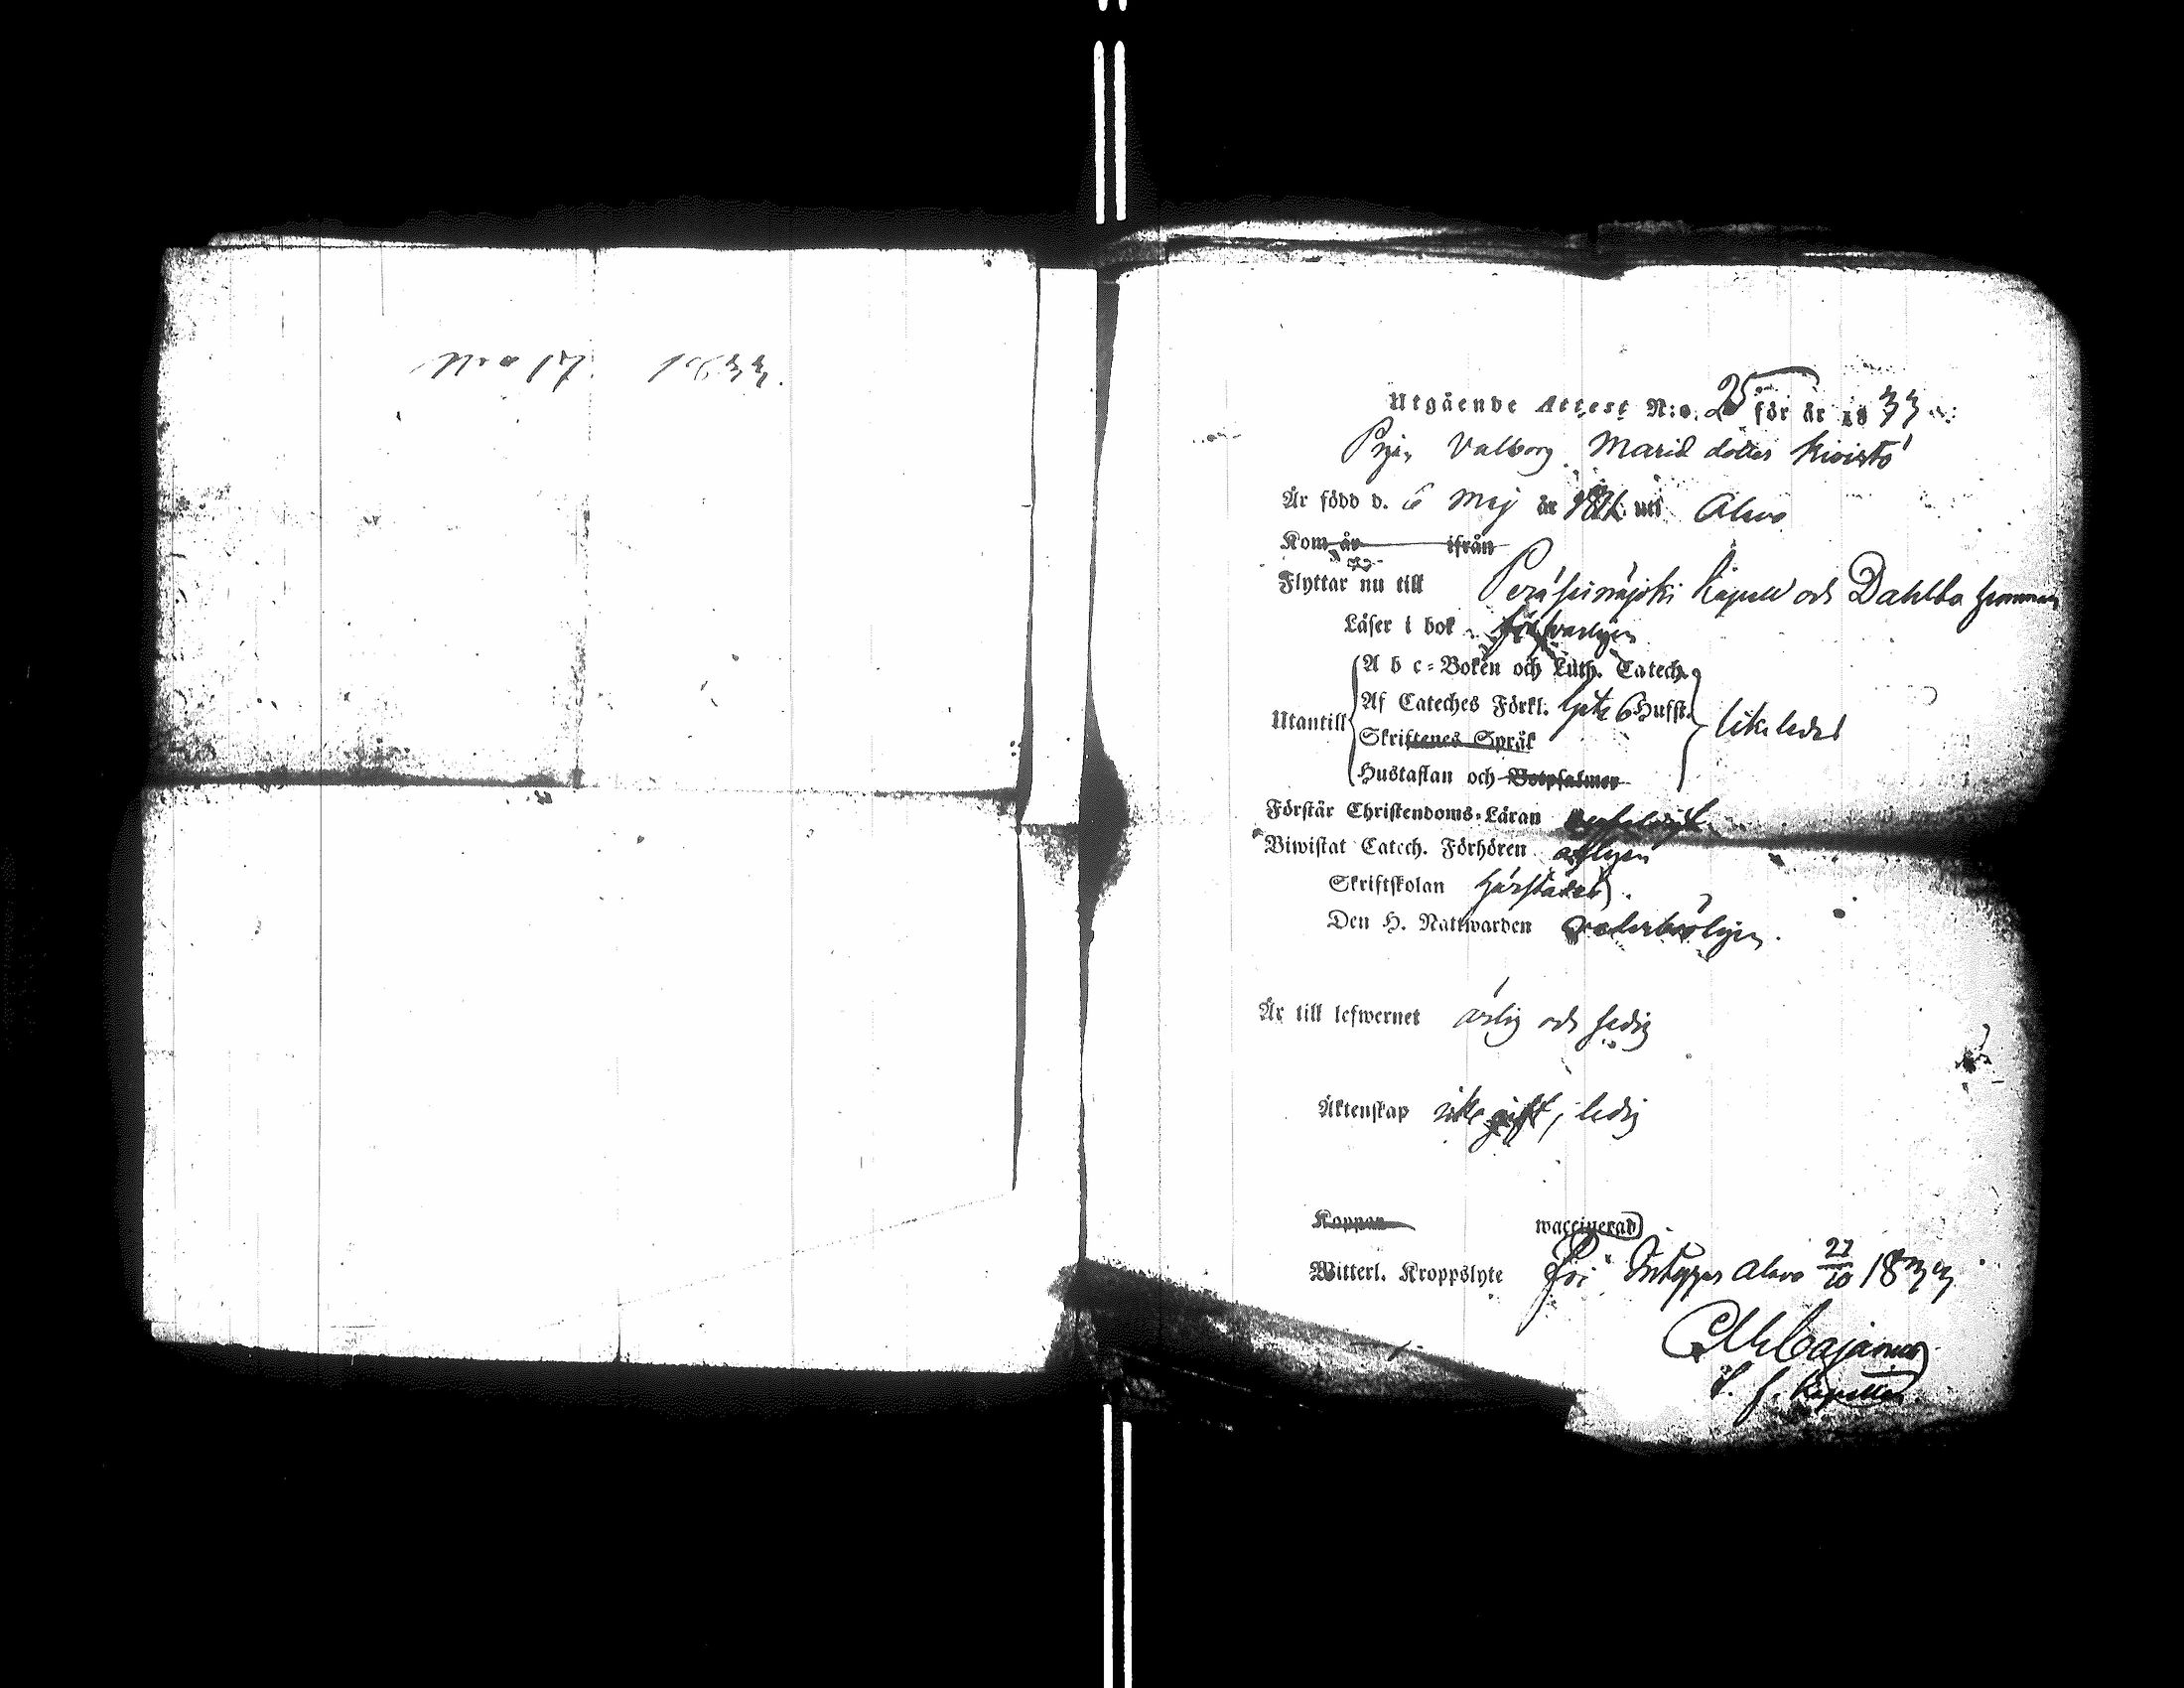 Nro 17. 1833.
Utgående Attest N:o. 25 för år 1833
Pigan Valborg Marid dotter Kivistö
Är född d. 6 Maj år uti Alavo
Kom år ifrån
Flyttar nu till Peräseinäjoki Kapell och Dahlba hemman
Läser i bok försvarligen
A b c-Boken och Luth. Catech.
Af Cateches Förkl. 6 Hufst.
Utantill likaledes
Skriftenes Språk
Hustaflan och Botpsalmer
Förstår Christendoms-Läran
Biwistat Catech. Förhören årligen
Skriftskolan härstädes.
Den H. Nattwarden vederbörligen.
Är till lefwernet ärlig och sedig
Äktenskap icke gift, ledig
Koppan waccinerad
Witterl. Kroppslyte fri Alavo 1833
Cajanus
Kapellan